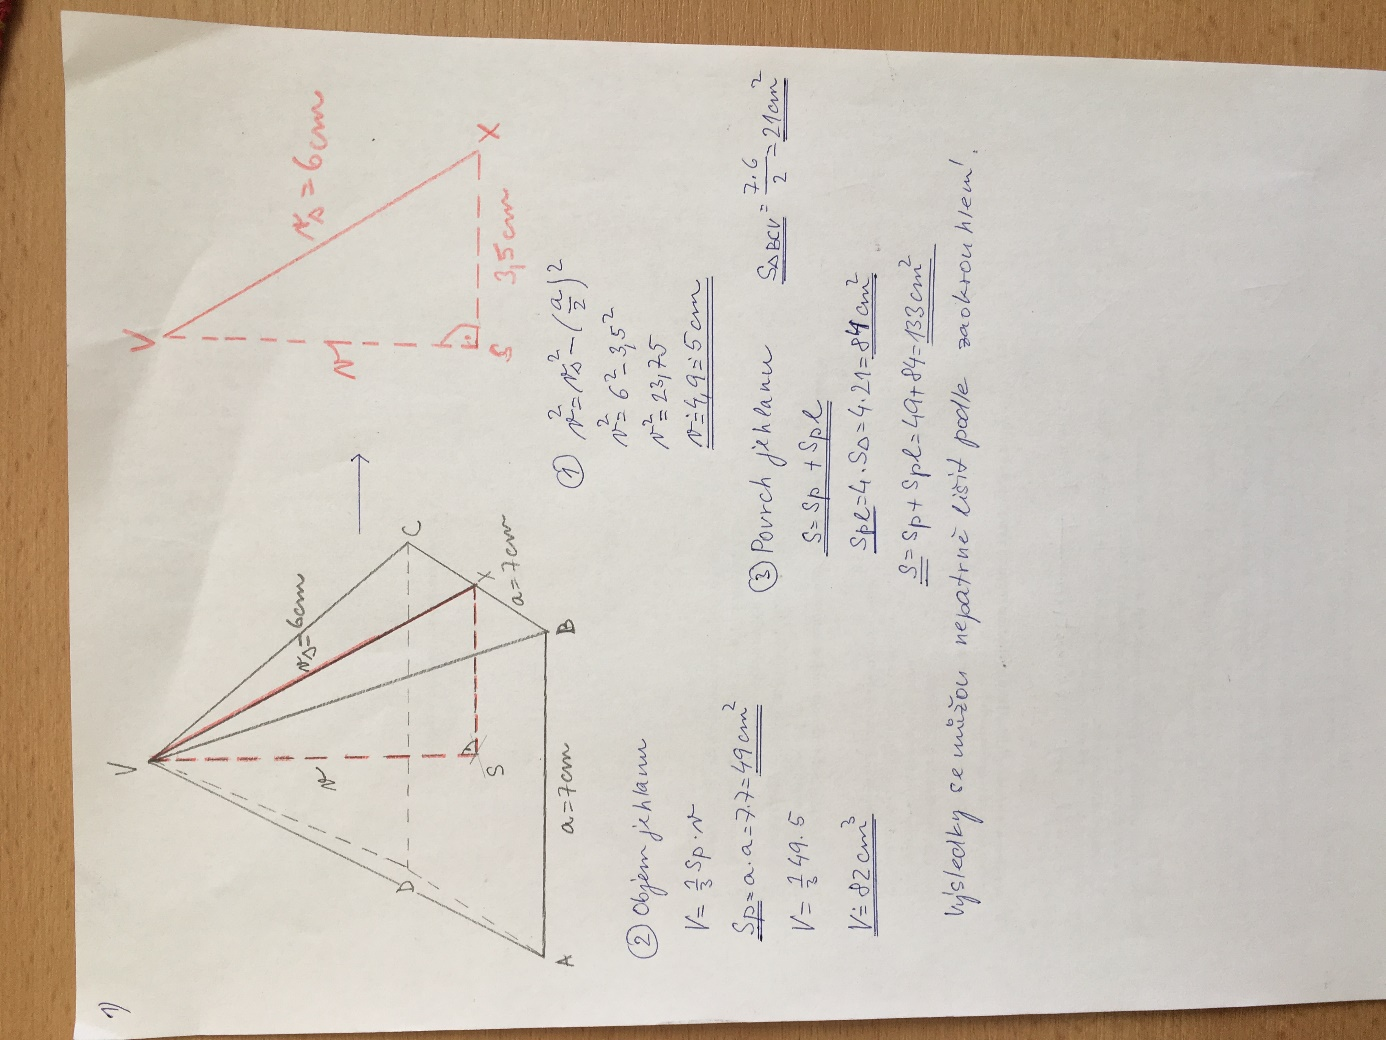 1)
V
v
v△=6cm
D
C
S
X
a=7cm
A
a=7cm
B
V
v
v△=6cm
S
3,5cm
X
① v²=v△²-(a/2)²
v²=6²-3,5²
v²=23,75
v≐4,9≐5cm
② Objem jehlanu
V=1/3 Sp·v
Sp=a·a=7·7=49cm²
V=1/3 49·5
V≐82cm³
③ Povrch jehlanu
S=Sp+Spl
S△BCV=7·6/2=21cm²
Spl=4·S△=4·21=84cm²
S=Sp+Spl=49+84=133cm²
Výsledky se můžou nepatrně lišit podle zaokrouhlení.